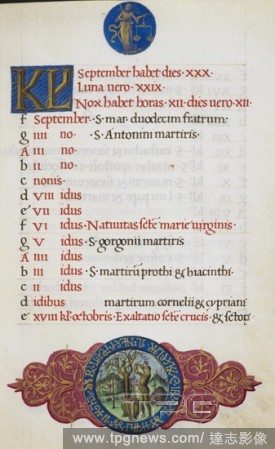 September habet dies · XXX.
Luna uero · XXIX.
Nox habet horas · XII · dies uero · XII.
KL
f September · S · mar · duodecim fratrum·
g IIII no. · S · Antonini martiris.
A III no.
b II no.
c nonis.
d VIII idus
e VII idus
f VI idus · Natiuitas scte marie uirginis.
g V idus · S · gorgonii martiris
A IIII idus
b III idus · S · martirū prothi & hiacinthi·
c II idus
d idibus martirum cornelii & cypriani
e XVIII kl' octobris · Exaltatio scte crucis &
www.tpgnews.com/ 達志影像